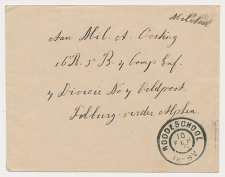 Militair
Aan Mil. A. Oosting
16 R. 3 B. 4 Comp. Inf.
4 Divisie No 4 Veldpost
Tilburg verder Alphen.
ROODESCHOOL
10
FEB
12-8V